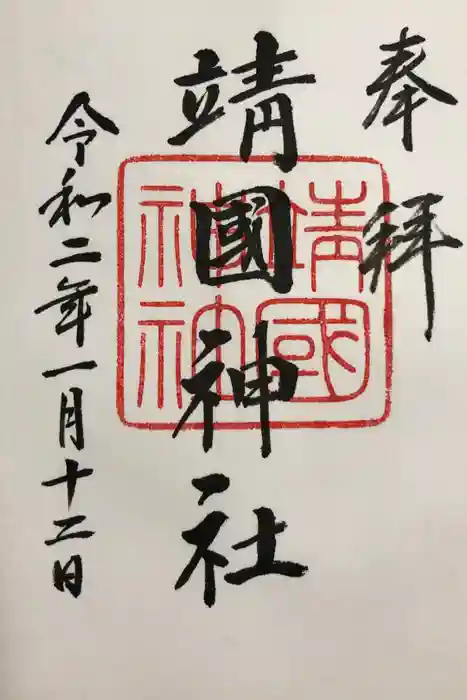 奉拝
靖國神社
靖國神社
令和二年一月十二日